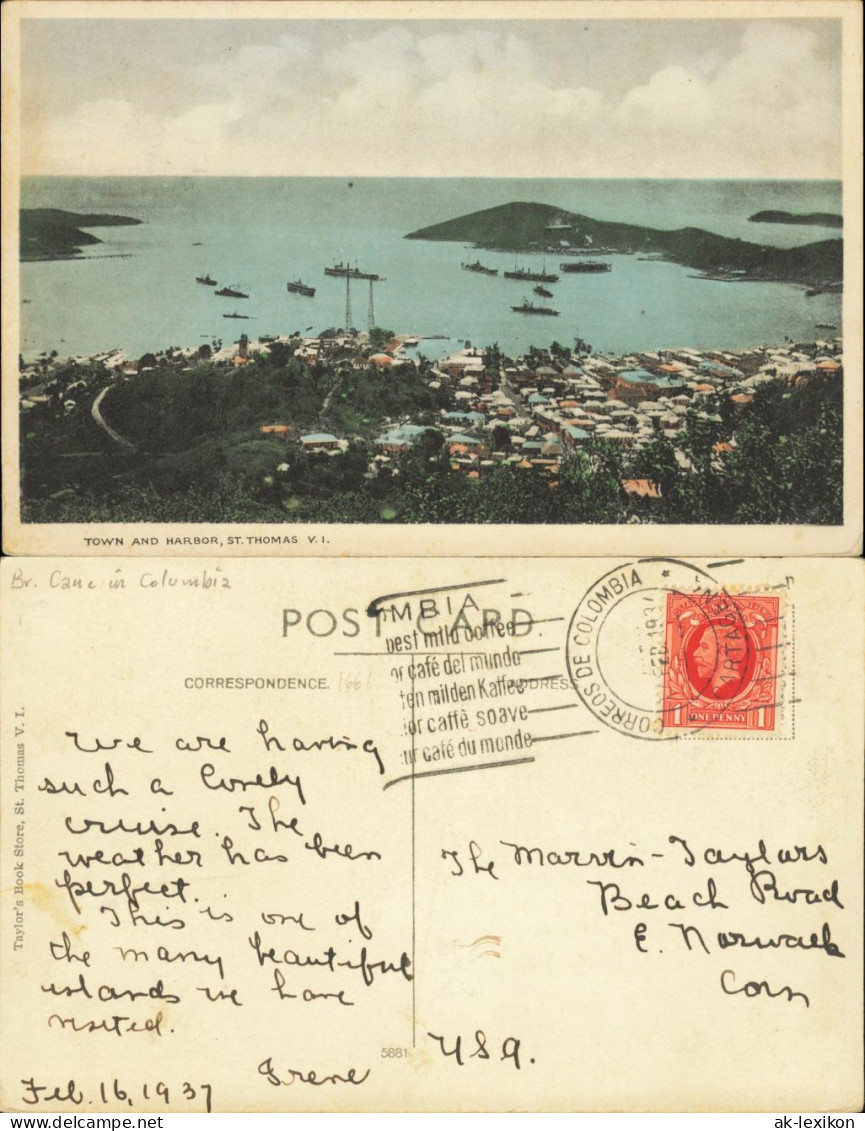 TOWN AND HARBOR, ST. THOMAS V. I.
Br. Cane in Columbia
POST CARD.
CORRESPONDENCE.
ADDRESS
MBIA
best mild coffee
or café del mundo
ten milden Kaffee
ior caffè soave
ur café du monde
CORREOS DE COLOMBIA
FEB 1937
ARTAG
ONE PENNY
1 1
Taylor's Book Store, St. Thomas V. I.
We are having
such a lovely
cruise. The
weather has been
perfect.
This is one of
the many beautiful
islands we have
visited.
Irene
Feb. 16, 1937
5881
The Marvin-Taylors
Beach Road
E. Norwalk
Conn
USA.
ak-lexikon